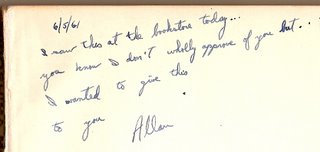 6/5/61
I saw this at the bookstore today...
you know I don't wholly approve of you but...
I wanted to give this
to you.
Allan